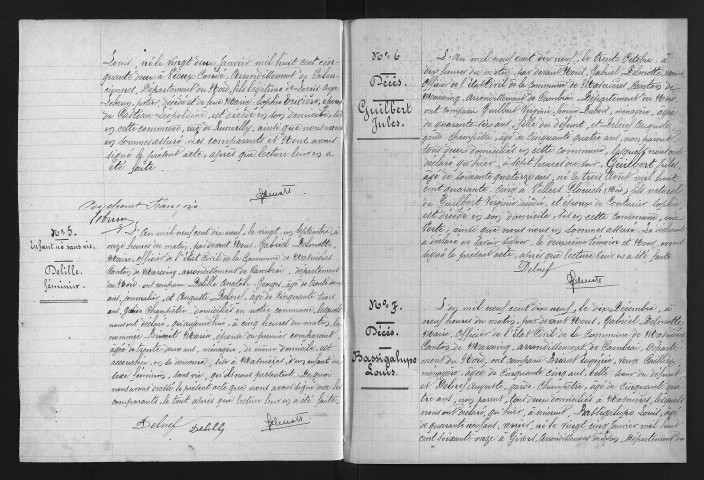 Louis, né le vingt deux janvier mil huit cent cin-
quante deux à Vieux Condé, Arrondissement de Valen-
ciennes, Département du Nord, fils légitime de Louis
et de Marie Sophie
de Castiau Léopoldine, est décédé en son domicile, sis
en cette commune, rue de Rumilly, ainsi que nous nous
en sommes assuré. Les comparants et Nous avons
signé le présent acte, après que lecture leur en a
été faite.
François
Delmotte
No 5.
Enfant né sans vie.
Delille.
Féminin.
L'An mil neuf cent dix neuf, le vingt six Septembre, à
onze heures du matin, par devant Nous, Gabriel Delmotte,
Maire, Officier de l'état Civil de la Commune de Masnières
Canton de Marcoing, arrondissement de Cambrai, département
du Nord, ont comparu Delille Anatole, Georges, âgé de trente
ans, journalier, et Auguste Delnef, âgé de cinquante trois
ans, Garde Champêtre, domiciliés en cette commune, lesquels
nous ont déclaré, qu'aujourd'hui à cinq heures du matin, la
nommée Marie, épouse du premier comparant,
âgée de trente ans, ménagère, du même domicile, est
accouchée, en sa demeure, sise à Masnières, d'un enfant du
sexe féminin, sans vie, qu'ils nous présentent. De quoi
nous avons dressé le présent acte que nous avons signé avec les
comparants, le tout après que lecture leur en a été faite.
Delnef Delille Delmotte
No 6
Décès.
Guilbert
Jules.
L'An mil neuf cent dix neuf, le trente Octobre, à
dix heures du matin, par devant Nous, Gabriel Delmotte, Maire,
Officier de l'Etat Civil de la Commune de Masnières, Canton
de Marcoing, Arrondissement de Cambrai, Département du Nord,
ont comparu Guilbert Virginie, ménagère, âgée
de quarante six ans, fille du défunt, et Delnef Auguste
garde Champêtre, âgé de Cinquante quatre ans, non parent
tous deux domiciliés en cette commune, lesquels nous ont
déclaré qu'hier, à sept heures du soir, Guilbert Jules
âgé de soixante quatorze ans, né le trois Août mil huit
cent quarante cinq à Villers Plouich (Nord), fils naturel
de Guilbert Virginie, et époux de Sophie
est décédé en son domicile, sis en cette commune, rue
Verte, ainsi que nous nous en sommes assuré. La déclarante
a déclaré ne savoir signer, le deuxième témoin et Nous, avons
signé le présent acte, après que lecture leur en a été faite
Delnef
Delmotte
No 7.
Décès.
Bassigalupo
Louis.
L'an mil neuf cent dix neuf, le dix Décembre, à
neuf heures du matin, par devant Nous, Gabriel Delmotte
Maire, Officier de l'Etat Civil de la Commune de Masnières
Canton de Marcoing, arrondissement de Cambrai, Départe-
ment du Nord, ont comparu Eugénie, veuve
ménagère, âgée de cinquante cinq ans, belle sœur du défunt
et Delnef Auguste, garde Champêtre, âgé de Cinquante qua-
tre ans, non parent, tous deux domiciliés à Masnières, lesquels
nous ont déclaré, qu'hier, à minuit, Bassigalupo Louis, âgé
de quarante neuf ans, né le vingt cinq Janvier mil huit
cent soixante onze à Givors, Arrondissement de Lyon, Département du